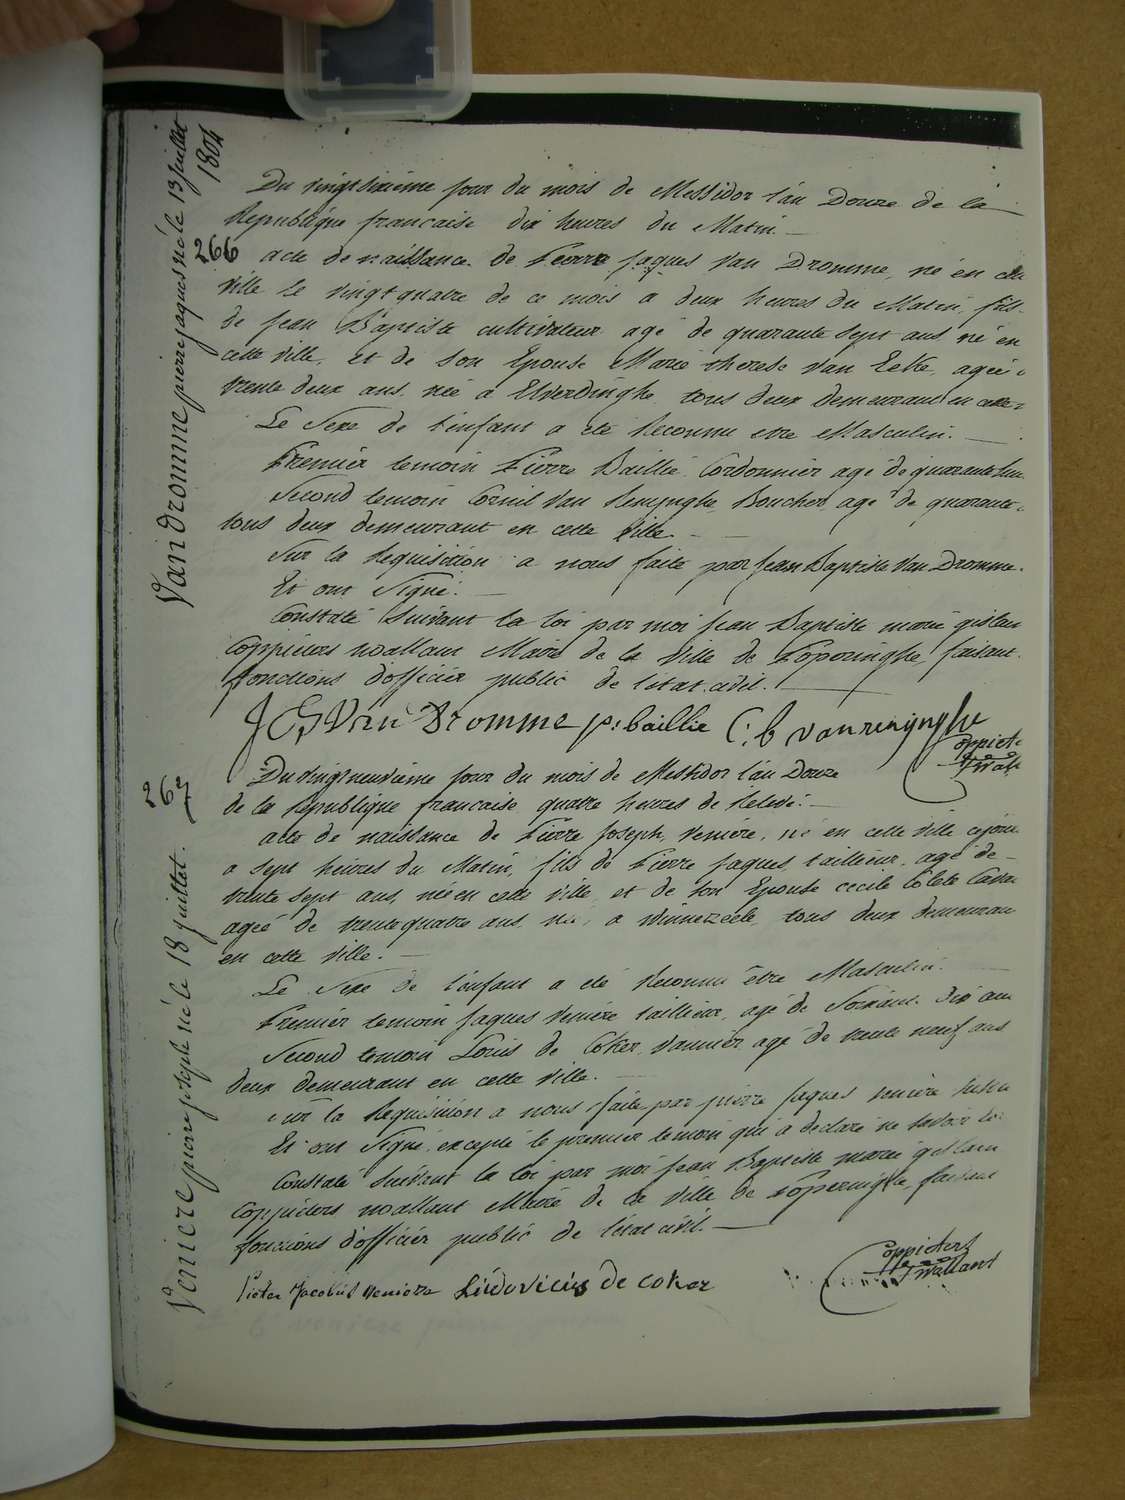 Vandromme pierre jaques né le 13 juillet
1804
Du vingtsixième jour du mois de Messidor l'an Douze de la
Republique francaise dix heures du Matin.
266
acte de naissance de Pierre jaques Van Dromme, né en cette
ville le vingtquatre de ce mois a deux heures du Matin, fils
de jean Baptiste cultivateur agé de quarante sept ans né en
cette ville, et de son Epouse Marie therese Van Eeke, agée
trente deux ans, née a Elverdinghe, tous deux demeurant en cette
Le Sexe de l'enfant a eté Reconnu etre Masculin.
Premier temoin Pierre Baillie Cordonnier agé de quarante
Second temoin Cornil Van Renynghe, Boucher, agé de quarante
tous deux demeurant en cette Ville.
Sur la Requisition a nous faite par jean Baptiste Van Dromme.
Et ont Signé.
Constaté Suivant la loi par moi jean Baptiste marie gislain
Coppieters wallant Maire de la Ville de Poperinghe, faisant
fonctions d'officier public de l'état civil.
Van Dromme p: baillie C: b vanrenynghe
Coppiet
T Wal
267
Du vingtneuvième jour du mois de Messidor l'an Douze
de la Republique francaise quatre heures de Relevé.
acte de naissance de Pierre Joseph, Venière, né en cette ville cejour
a sept heures du Matin, fils de Pierre jaques tailleur, agé de
trente sept ans, né en cette ville, et de son Epouse cecile Colete
agée de trentequatre ans née a Winnezeele, tous deux demeuran
en cette Ville.
Le Sexe de l'enfant a eté Reconnu être Masculin.
Venière pierre joseph né le 18 juillet.
Premier temoin jaques Venière tailleur, agé de Soixante Dix ans
Second temoin Louis de Coker, Vannier agé de trente neuf ans
deux demeurant en cette Ville.
Sur la Requisition a nous faite par pierre jaques venière
Et ont Signé, excepté le premier temoin qui a declaré ne savoir
Constaté Suivant la loi par moi jean Baptiste marie gislain
Coppieters wallant Maire de la Ville de Poperinghe, faisant
fonctions d'officier public de l'état civil.
Pieter Jacobus Veniere Ludovicus De Coker
Coppieters
T Wallant